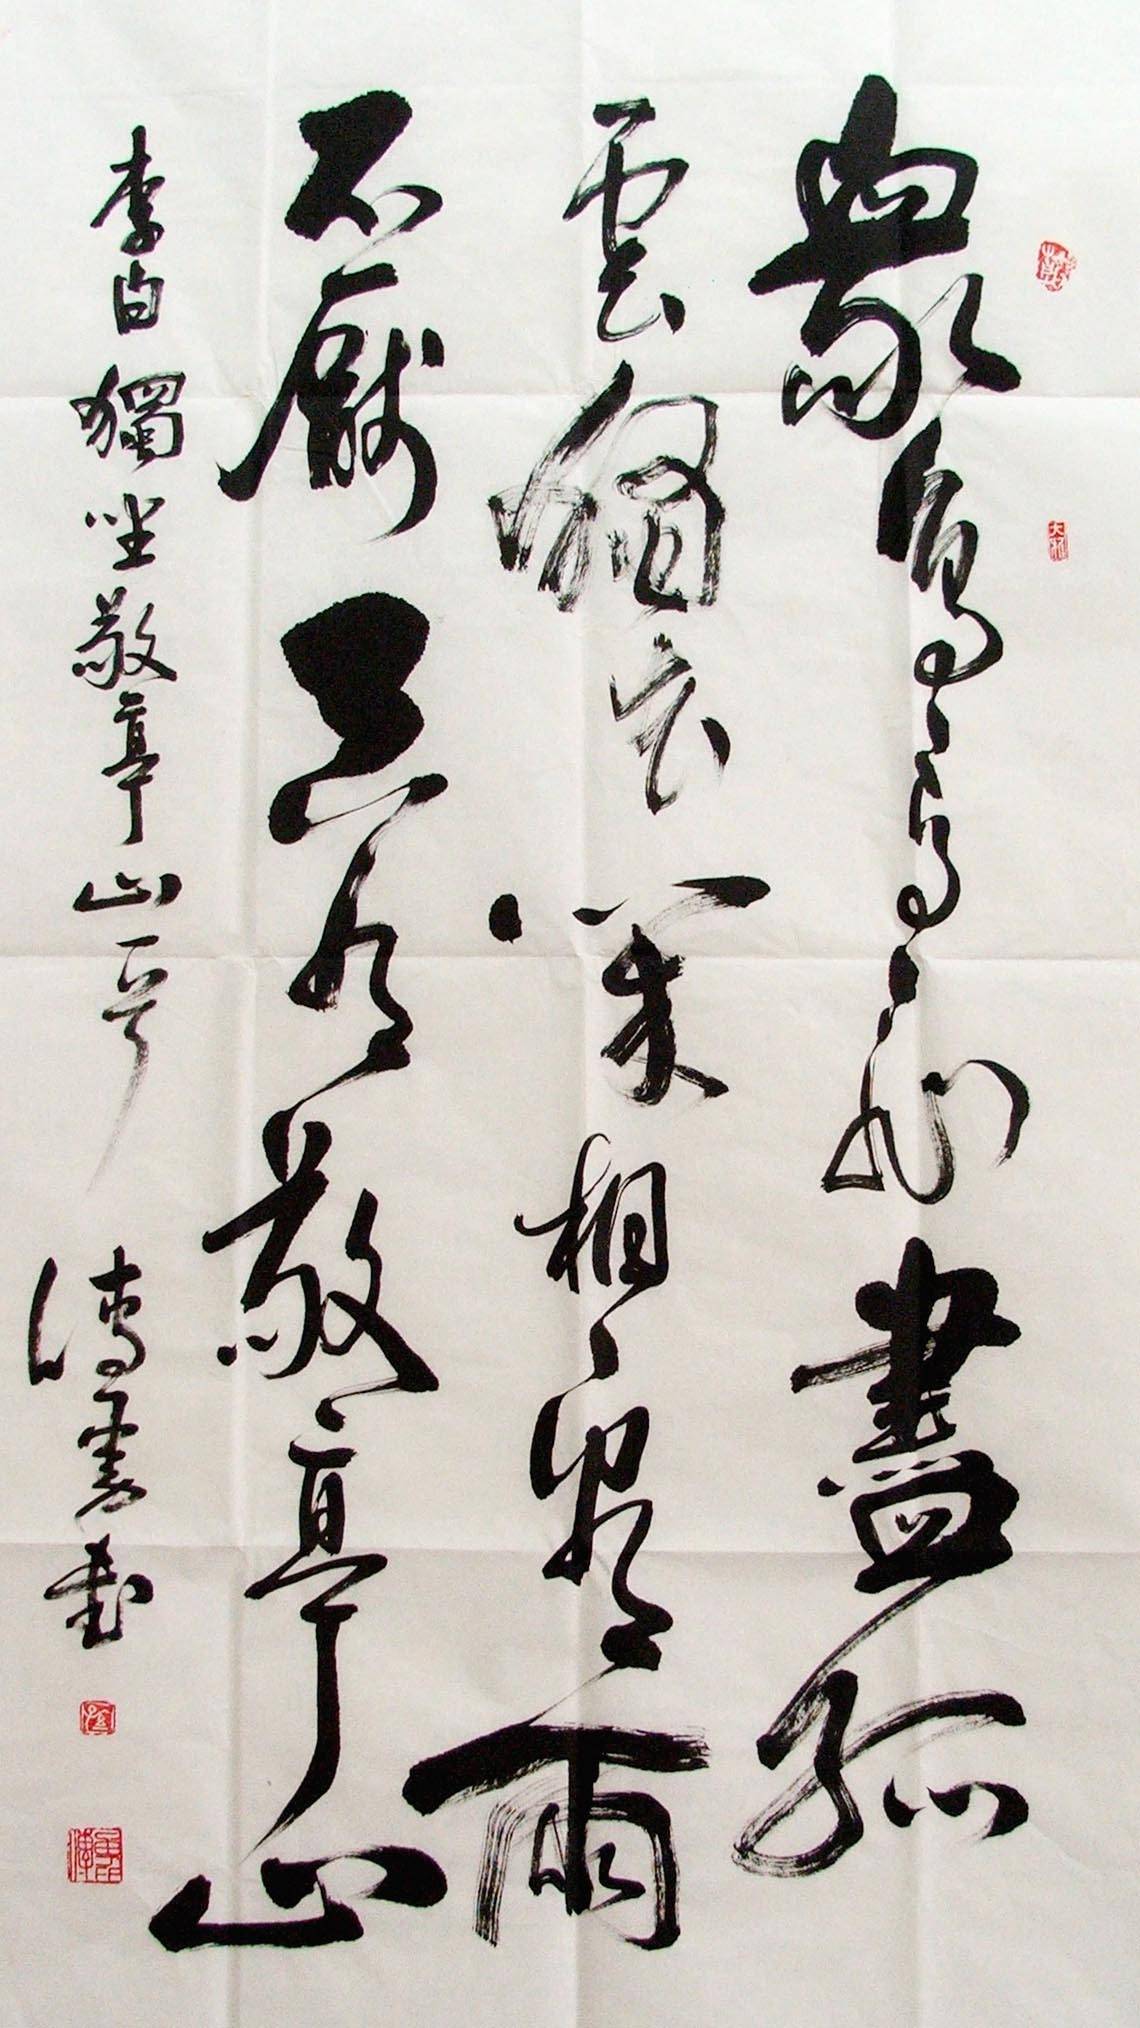 衆鳥高飛盡孤
雲獨去閑相看兩
不厭只有敬亭山
李白獨坐敬亭山
大雅